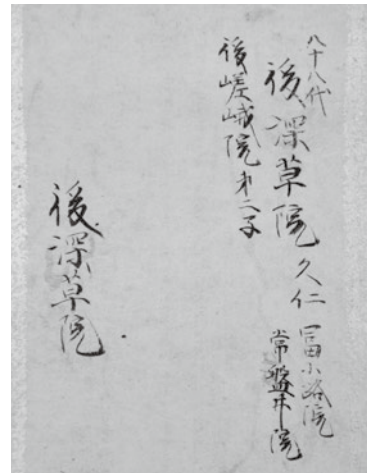 八十八代
後深草院 久仁 冨小路院
常盤井院
後嵯峨院 才二子
後深草院